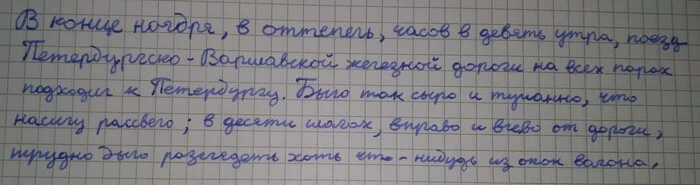 В конце ноября, в оттепель, часов в девять утра, поезд
Петербургско-Варшавской железной дороги на всех парах
подходил к Петербургу. Было так сыро и туманно, что
насилу рассвело; в десяти шагах, вправо и влево от дороги,
трудно было разглядеть хоть что-нибудь из окон вагона.